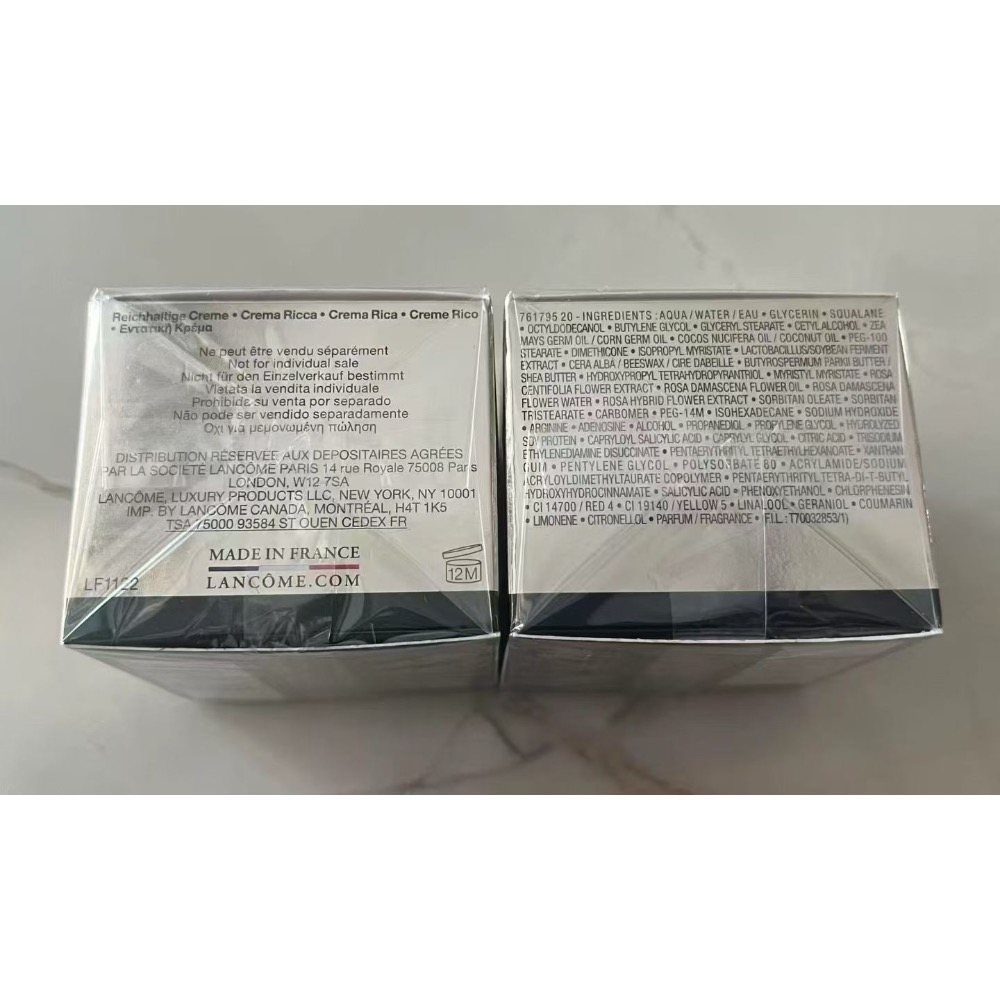 Reichhaltige Creme • Crema Ricca • Crema Rica • Creme Rico
• Εντατική Κρέμα
Ne peut être vendu séparément
Not for individual sale
Nicht für den Einzelverkauf bestimmt
Vietata la vendita individuale
Prohibida su venta por separado
Não pode ser vendido separadamente
Όχι για μεμονωμένη πώληση
DISTRIBUTION RÉSERVÉE AUX DEPOSITAIRES AGRÉES
PAR LA SOCIETÉ LANCÔME PARIS 14 rue Royale 75008 Paris
LONDON, W12 7SA
LANCÔME, LUXURY PRODUCTS LLC, NEW YORK, NY 10001
IMP. BY LANCÔME CANADA, MONTRÉAL, H4T 1K5
TSA 75000 93584 ST OUEN CEDEX FR
MADE IN FRANCE
LANCÔME.COM
12M
LF1122
761795 20 - INGREDIENTS : AQUA / WATER / EAU • GLYCERIN • SQUALANE
• OCTYLDODECANOL • BUTYLENE GLYCOL • GLYCERYL STEARATE • CETYL ALCOHOL • ZEA
MAYS GERM OIL / CORN GERM OIL • COCOS NUCIFERA OIL / COCONUT OIL • PEG-100
STEARATE • DIMETHICONE • ISOPROPYL MYRISTATE • LACTOBACILLUS/SOYBEAN FERMENT
EXTRACT • CERA ALBA / BEESWAX / CIRE DABEILLE • BUTYROSPERMUM PARKII BUTTER /
SHEA BUTTER • HYDROXYPROPYL TETRAHYDROPYRANTRIOL • MYRISTYL MYRISTATE • ROSA
CENTIFOLIA FLOWER EXTRACT • ROSA DAMASCENA FLOWER OIL • ROSA DAMASCENA
FLOWER WATER • ROSA HYBRID FLOWER EXTRACT • SORBITAN OLEATE • SORBITAN
TRISTEARATE • CARBOMER • PEG-14M • ISOHEXADECANE • SODIUM HYDROXIDE
• ARGININE • ADENOSINE • ALCOHOL • PROPANEDIOL • PROPYLENE GLYCOL • HYDROLYZED
SOY PROTEIN • CAPRYLOYL SALICYLIC ACID • CAPRYLYL GLYCOL • CITRIC ACID • TRISODIUM
ETHYLENEDIAMINE DISUCCINATE • PENTAERYTHRITYL TETRAETHYLHEXANOATE • XANTHAN
GUM • PENTYLENE GLYCOL • POLYSORBATE 80 • ACRYLAMIDE/SODIUM
ACRYLOYLDIMETHYLTAURATE COPOLYMER • PENTAERYTHRITYL TETRA-DI-T-BUTYL
HYDROXYHYDROCINNAMATE • SALICYLIC ACID • PHENOXYETHANOL • CHLORPHENESIN
• CI 14700 / RED 4 • CI 19140 / YELLOW 5 • LINALOOL • GERANIOL • COUMARIN
• LIMONENE • CITRONELLOL • PARFUM / FRAGRANCE • F.I.L. : T70032853/1)